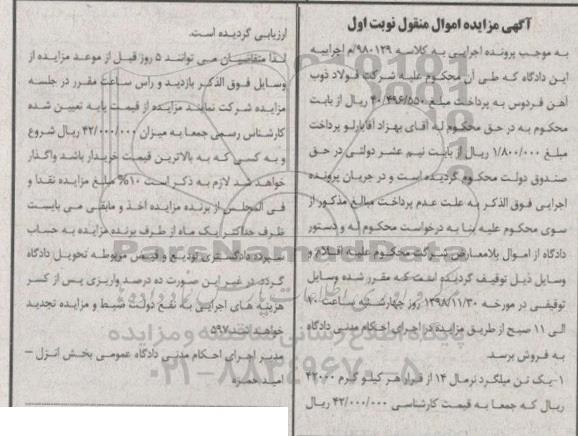 آگهی مزایده اموال منقول نوبت اول
به موجب پرونده اجرایی به کلاسه ۹۸۰۱۲۹/م اجراییه
این دادگاه که طی آن محکوم علیه شرکت فولاد ذوب
آهن فردوس به پرداخت مبلغ ۴۰/۴۹۶/۵۵۰ ریال از بابت
محکوم به در حق محکوم له آقای بهزاد آقابارلو پرداخت
مبلغ ۱/۸۰۰/۰۰۰ ریال از بابت نیم عشر دولتی در حق
صندوق دولت محکوم گردیده است و در جریان پرونده
اجرایی فوق الذکر به علت عدم پرداخت مبالغ مذکور از
سوی محکوم علیه بنا به درخواست محکوم له و دستور
دادگاه از اموال بلامعارض شرکت محکوم علیه اقلام و
وسایل ذیل توقیف گردیده است که مقرر شده وسایل
توقیفی در مورخه ۱۳۹۸/۱۱/۳۰ روز چهارشنبه ساعت ۱۰
الی ۱۱ صبح از طریق مزایده در اجرای احکام مدنی دادگاه
به فروش برسد.
۱-یک تن میلگرد نرمال ۱۴ از قرار هر کیلو گرم ۴۲۰۰۰
ریال که جمعا به قیمت کارشناسی ۴۲/۰۰۰/۰۰۰ ریال
ارزیابی گردیده است.
لذا متقاضیان می توانند ۵ روز قبل از موعد مزایده از
وسایل فوق الذکر بازدید و راس ساعت مقرر در جلسه
مزایده شرکت نمایند مزایده از قیمت پایه تعیین شده
کارشناس رسمی جمعا به میزان ۴۲/۰۰۰/۰۰۰ ریال شروع
و به کسی که به بالاترین قیمت خریدار باشد واگذار
خواهد شد لازم به ذکر است ۱۰% مبلغ مزایده نقدا و
فی المجلس از برنده مزایده اخذ و مابقی می بایست
ظرف حداکثر یک ماه از طرف برنده مزایده به حساب
سپرده دادگستری تودیع و فیش مربوطه تحویل دادگاه
گردد در غیر این صورت ده درصد واریزی پس از کسر
هزینه های اجرایی به نفع دولت ضبط و مزایده تجدید
خواهد شد.۵۹۷
مدیر اجرای احکام مدنی دادگاه عمومی بخش انزل –
امید حمزه
ParsNamadData
پایگاه اطلاع رسانی مناقصه و مزایده
۰۲۱-۸۸۳۴۹۶۷۰-۵